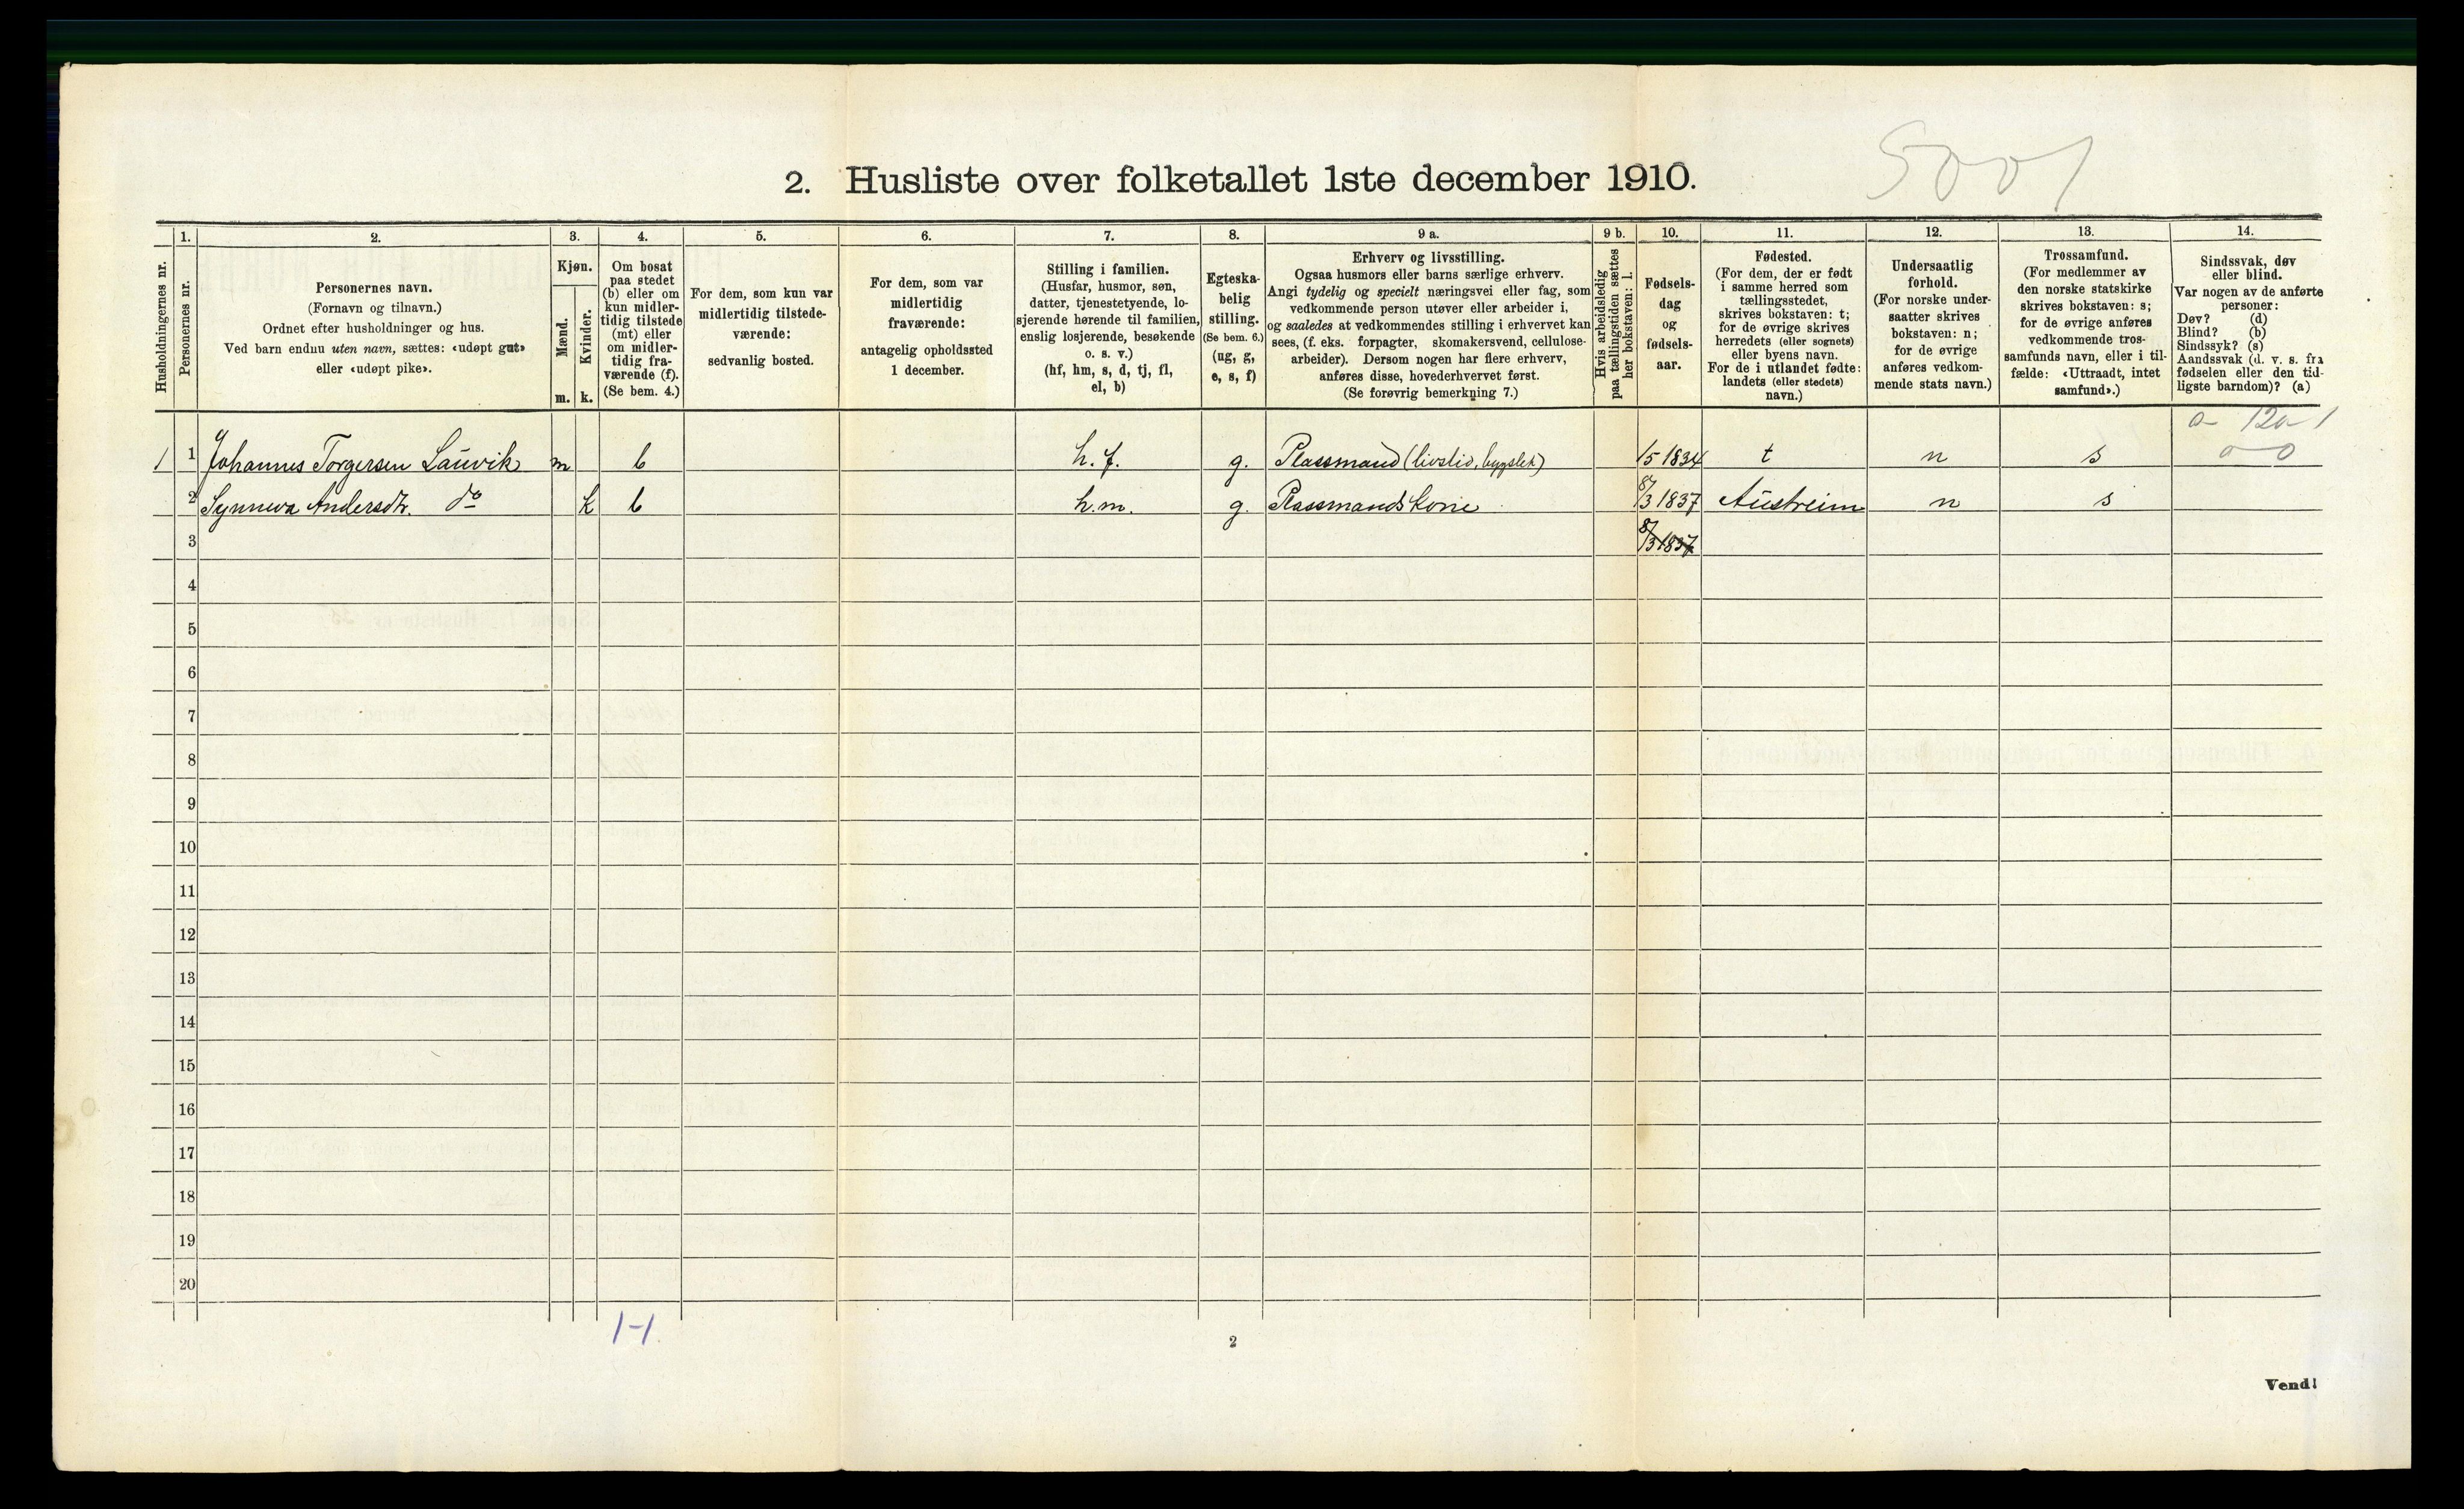 5001
2. Husliste over folketallet 1ste december 1910.
Husholdningernes nr.
1.
Personernes nr.
2.
Personernes navn.
(Fornavn og tilnavn.)
Ordnet efter husholdninger og hus.
Ved barn endnu uten navn, sættes: «udøpt gut»
eller «udøpt pike».
3.
Kjøn.
Mænd.
Kvinder.
m. k.
4.
Om bosat
paa stedet
(b) eller om
kun midler-
tidig tilstede
(mt) eller
om midler-
tidig fra-
værende (f).
(Se bem. 4.)
5.
For dem, som kun var
midlertidig tilstede-
værende:
sedvanlig bosted.
6.
For dem, som var
midlertidig
fraværende:
antagelig opholdssted
1 december.
7.
Stilling i familien.
(Husfar, husmor, søn,
datter, tjenestetyende, lo-
sjerende hørende til familien,
enslig losjerende, besøkende
o. s. v.)
(hf, hm, s, d, tj, fl,
el, b)
8.
Egteska-
belig
stilling.
(Se bem. 6.)
(ug, g,
e, s, f)
9 a.
Erhverv og livsstilling.
Ogsaa husmors eller barns særlige erhverv.
Angi tydelig og specielt næringsvei eller fag, som
vedkommende person utøver eller arbeider i,
og saaledes at vedkommendes stilling i erhvervet kan
sees, (f. eks. forpagter, skomakersvend, cellulose-
arbeider). Dersom nogen har flere erhverv,
anføres disse, hovederhvervet først.
(Se forøvrig bemerkning 7.)
9 b.
Hvis arbeidsledig
paa tællingstiden sættes
her bokstaven: l.
10.
Fødsels-
dag
og
fødsels-
aar.
11.
Fødested.
(For dem, der er født
i samme herred som
tællingsstedet,
skrives bokstaven: t;
for de øvrige skrives
herredets (eller sognets)
eller byens navn.
For de i utlandet fødte:
landets (eller stedets)
navn.)
12.
Undersaatlig
forhold.
(For norske under-
saatter skrives
bokstaven: n;
for de øvrige
anføres vedkom-
mende stats navn.)
13.
Trossamfund.
(For medlemmer av
den norske statskirke
skrives bokstaven: s;
for de øvrige anføres
vedkommende tros-
samfunds navn, eller i til-
fælde: «Uttraadt, intet
samfund».)
14.
Sindssvak, døv
eller blind.
Var nogen av de anførte
personer:
Døv? (d)
Blind? (b)
Sindssyk? (s)
Aandssvak (d. v. s. fra
fødselen eller den tid-
ligste barndom)? (a)
1 1 Johannes Torgersen Lauvik m b h.f. g. Plassmand (livstid, bygslet) 1834 t n s 0-0
2 Synneva Andersdtr. do k b h.m. g. Plassmandskone 8/3 1837 Austreim n s
3 8/3 1837
4
5
6
7
8
9
10
11
12
13
14
15
16
17
18
19
20
1-1.
2
Vend!